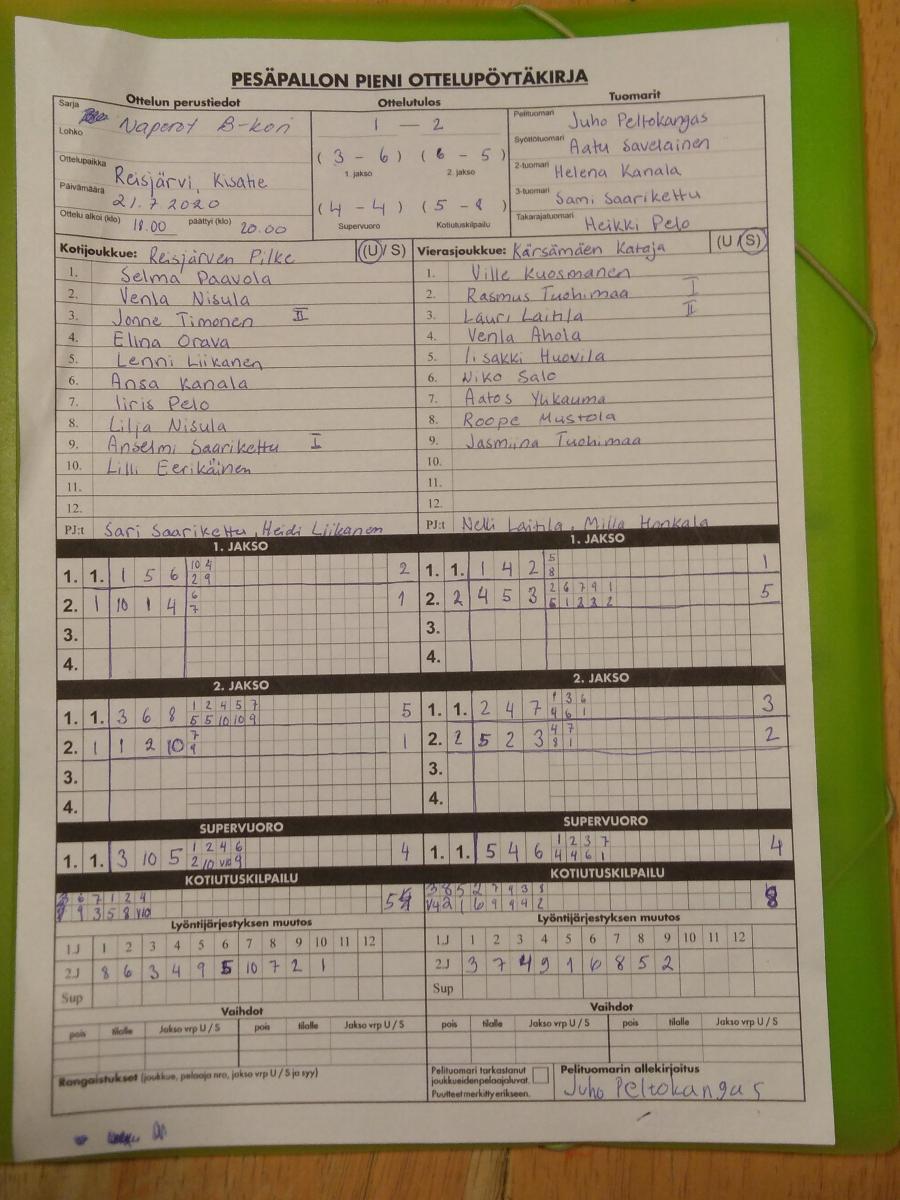 PESÄPALLON PIENI OTTELUPÖYTÄKIRJA
Ottelun perustiedot
Sarja
Lohko
Naperot B-kori
Ottelupaikka
Reisjärvi, Kisatie
Päivämäärä
21.7.2020
Ottelu alkoi (klo) 18.00 päättyi (klo) 20.00
Ottelutulos
1 — 2
( 3 - 6 ) ( 6 - 5 )
1. jakso 2. jakso
( 4 - 4 ) ( 5 - 8 )
Supervuoro Kotiutuskilpailu
Tuomarit
Pelituomari Juho Peltokangas
Syöttötuomari Aatu Savelainen
2-tuomari Helena Kanala
3-tuomari Sami Saarikettu
Takarajatuomari Heikki Pelo
Kotijoukkue: Reisjärven Pilke (U / S)
1. Selma Paavola
2. Venla Nisula
3. Jonne Timonen II
4. Elina Orava
5. Lenni Liikanen
6. Ansa Kanala
7. Iiris Pelo
8. Lilja Nisula
9. Anselmi Saarikettu I
10. Lilli Eerikäinen
11.
12.
PJ:t Sari Saarikettu, Heidi Liikanen
Vierasjoukkue: Kärsämäen Kataja (U / S)
1. Ville Kuosmanen
2. Rasmus Tuohimaa I
3. Lauri Laitila II
4. Venla Ahola
5. Iisakki Huovila
6. Niko Salo
7. Aatos Ylikauma
8. Roope Mustola
9. Jasmiina Tuohimaa
10.
11.
12.
PJ:t Nelli Laitila, Milla Honkala
1. JAKSO
10 4
1. 1. 1 5 6 2
2 9
6
2. 1 10 1 4 1
7
3.
4.
1. JAKSO
5
1. 1. 1 4 2 1
8
2 6 7 9 1
2. 2 4 5 3 5
5 1 2 3 2
3.
4.
2. JAKSO
1 2 4 5 7
1. 1. 3 6 8 5
5 5 10 10 9
7
2. 1 1 2 10 1
9
3.
4.
2. JAKSO
1 3 6
1. 1. 2 4 7 3
4 6 1
4 7
2. 2 5 2 3 2
8 1
3.
4.
SUPERVUORO
1 2 4 6
1. 1. 3 10 5 4
2 10 9
SUPERVUORO
1 2 3 7
1. 1. 5 4 6 4
4 4 6 1
KOTIUTUSKILPAILU
6 7 1 2 4
9 3 5 8 V10
5
KOTIUTUSKILPAILU
3 8 5 2 7 9 3
V4 2 1 6 9 9 4 2
8
Lyöntijärjestyksen muutos
1J 1 2 3 4 5 6 7 8 9 10 11 12
2J 8 6 3 4 9 5 10 7 2 1
Sup
Lyöntijärjestyksen muutos
1J 1 2 3 4 5 6 7 8 9 10 11 12
2J 3 7 4 9 1 6 8 5 2
Sup
Vaihdot
pois tilalle Jakso vrp U / S pois tilalle Jakso vrp U / S
Vaihdot
pois tilalle Jakso vrp U / S pois tilalle Jakso vrp U / S
Rangaistukset (joukkue, pelaaja nro, jakso vrp U / S ja syy)
Pelituomari tarkastanut
joukkueidenpelaajaluvat.
Puutteet merkitty erikseen.
Pelituomarin allekirjoitus
Juho Peltokangas